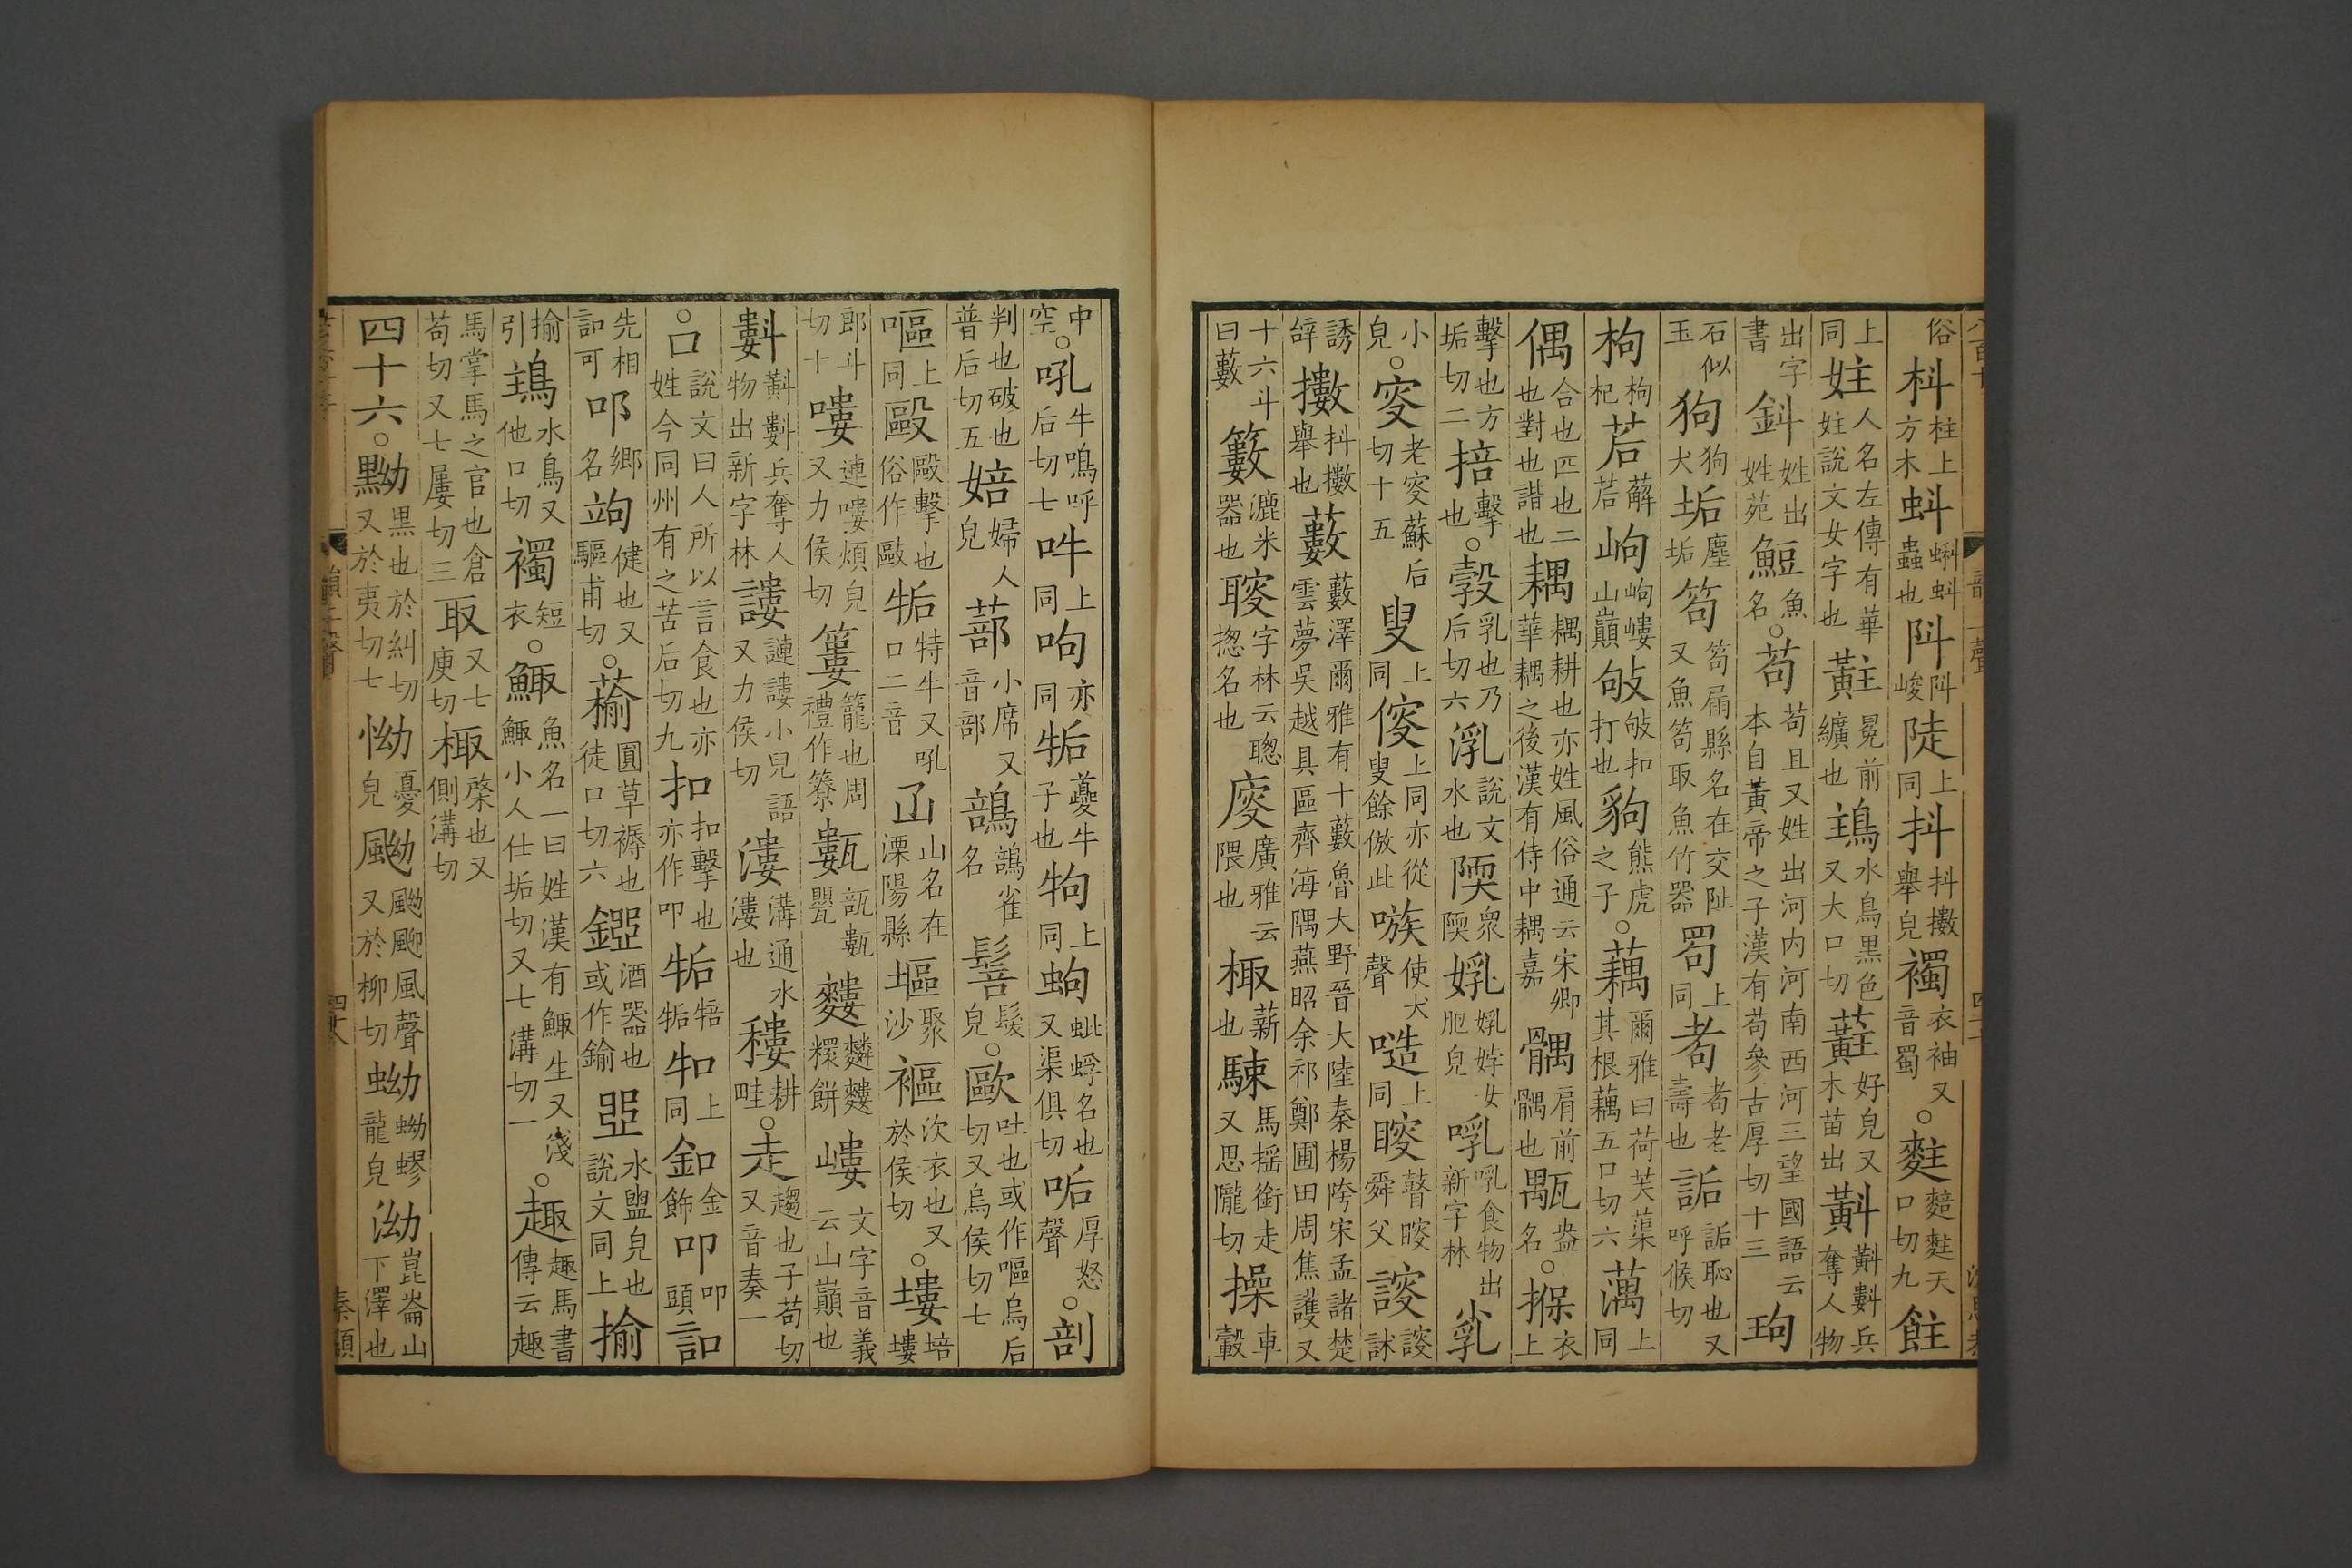 俗枓柱上方木蚪蝌蚪蟲也阧阧峻陡上同抖抖擻舉皃襡衣袖又音蜀○麰天口切九飳
上同妵人名左傳有華妵說文女字也黈冕前纊也鴸水鳥黑色又大口切蘣好皃又木苗出䵉䵉㪹兵奪人物
出字書鈄姓出姓苑䱏魚名○苟苟且又姓出河内河南西河三望國語云本自黃帝之子漢有苟參古厚切十三玽
石似玉狗狗犬垢塵垢笱笱扃縣名在交阯又魚笱取魚竹器𦊒上同耇耇老壽也詬詬恥也又呼候切
枸枸杞茩薢茩岣岣嶁山巔敂敂扣打也豿熊虎之子○藕爾雅曰荷芙蕖其根藕五口切六䕏上同
偶合也匹也二也對也諧也耦耦耕也亦姓風俗通云宋卿華耦之後漢有侍中耦嘉髃肩前髃也㼴盎名○掊衣上
擊也方垢切二掊擊也○㝅乳也乃后切六㳶說文水也陾衆陾㜨㜨婷女肥皃㖠㖠食物出新字林𡭾
小皃○叜老叜蘇后切十五叟上同傁上同亦從叟餘倣此嗾使犬聲𠾂上同瞍瞽瞍舜父謏謏訹
誘辝擻抖擻舉也藪藪澤爾雅有十藪魯大野晉大陸秦楊陓宋孟諸楚雲夢吳越具區齊海隅燕昭余祁鄭圃田周焦護又
十六斗曰藪籔漉米器也䏂字林云聰揔名也廋廣雅云隈也棷薪也駷馬搖銜走又思隴切橾車轂
中空○吼牛鳴呼后切七吽上同呴亦同㸸夔牛子也㸰上同蚼蚍蜉名也又渠俱切听厚怒聲○剖
判也破也普后切五婄婦人皃蔀小席又音部䴺䴺雀名䯽髮皃○歐吐也或作嘔烏后切又烏侯切七
嘔上同毆毆擊也俗作敺㸸特牛又吼口二音𡵆山名在溧陽縣塸聚沙褔次衣也又於侯切○塿培塿
郎斗切十嘍連嘍煩皃又力侯切簍籠也周禮作簝甊瓿甊甖䝏麱䝏糫餅嶁文字音義云山巔也
㪹䵉㪹兵奪人物出新字林謱謰謱小兒語又力侯切漊溝通水漊也耬耕畦○走趨也子苟切又音奏一
○口說文曰人所以言食也亦姓今同州有之苦后切九扣扣擊也亦作叩㸸㸬㸸牰上同釦金飾叩叩頭訆
先相訆可𨙫鄉名竘健也又驅甫切○蘛圓草褥也徒口切六鋀酒器也或作鍮㼖水盥皃也說文同上揄
揄引鴸水鳥又他口切襡短衣○鯫魚名一曰姓漢有鯫生又淺鯫小人仕垢切又七溝切一○趣趣馬書傳云趣
馬掌馬之官也倉苟切又七屢切三取又七庾切棷棨也又側溝切
四十六○黝黑也於糾切又於夷切七怮憂皃䬀䬀䬌風聲又於柳切蚴蚴蟉龍皃泑崑崙山下澤也